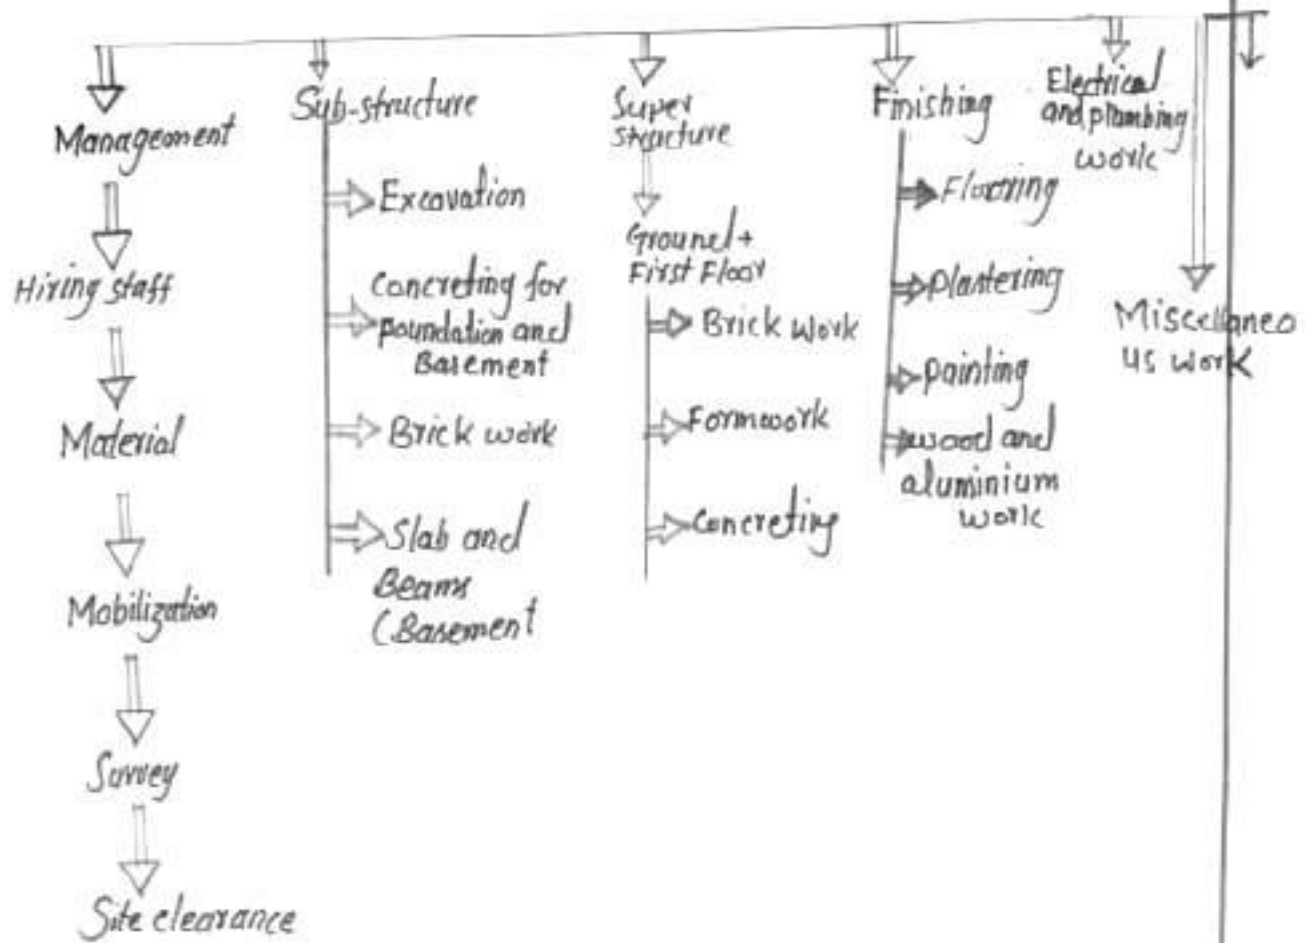 Management
Hiring staff
Material
Mobilization
Survey
Site clearance
Sub-structure
Excavation
Concreting for
foundation and
Basement
Brick work
Slab and
Beams
(Basement
Super
structure
Ground +
First Floor
Brick work
Formwork
Concreting
Finishing
Flooring
Plastering
Painting
wood and
aluminium
work
Electrical
and plumbing
work
Miscellaneo
us work